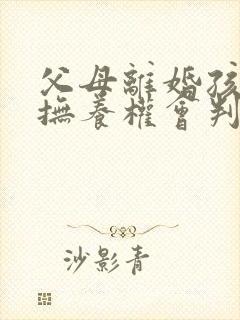 父母離婚孩
撫養權會判
沙影青